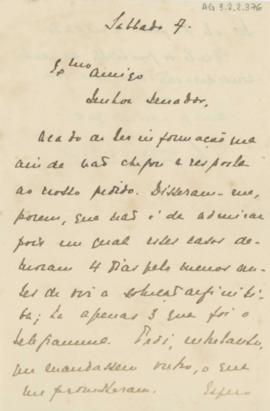 AG 3.2.2.376
Sabbado 7.
Ex.mo Amigo
Senhor Senador,
Acabo de ter informação que
ainda não chegou a resposta
ao nosso pedido. Disseram-me,
porem, que não é de admirar
pois em geral estes casos de-
moram 4 dias pelo menos an-
tes de vir a solução definiti-
va; ha apenas 3 que foi o
telegramma. Pedi, entretanto,
que mandassem outro, o que
me prometteram. Espero